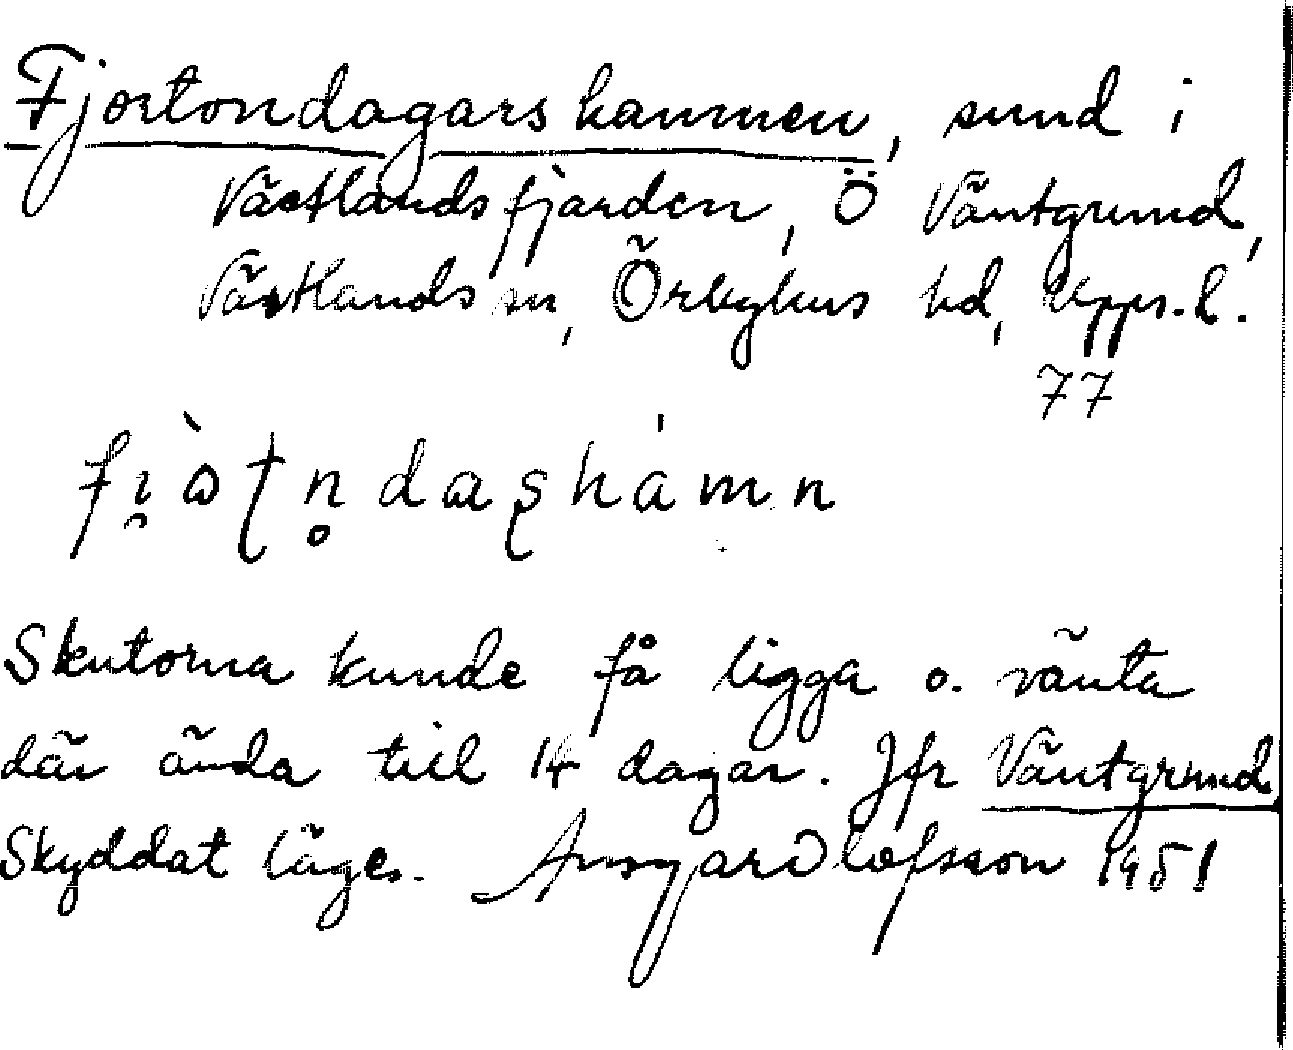 Fjortondagarshamnen, sund i
Västlandsfjärden, Ö Väntgrund,
Västlands sn, Örbyhus hd, Upps. l.
77
Skutorna kunde få ligga o. vänta
där ända till 14 dagar. Jfr Väntgrund
Skyddat läge. Ansgar Olofsson 1951